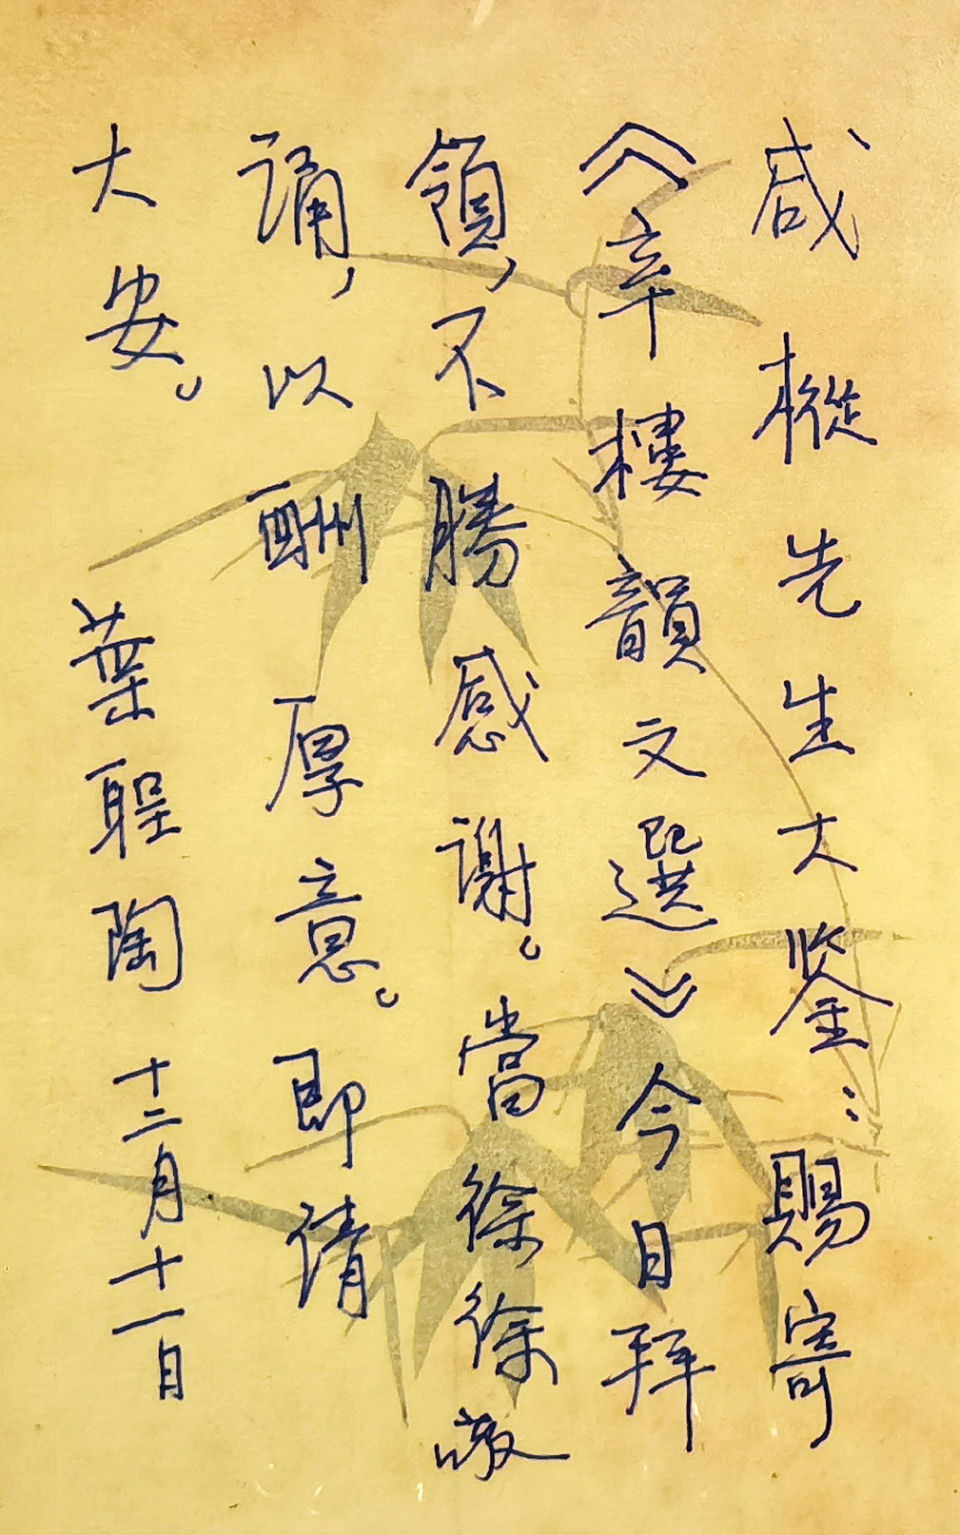 咸樅先生大鉴：賜寄
《辛樓韻文選》今日拜
領，不勝感謝。當徐徐敬
誦，以酬厚意。即请
大安。葉聖陶 十二月十一日